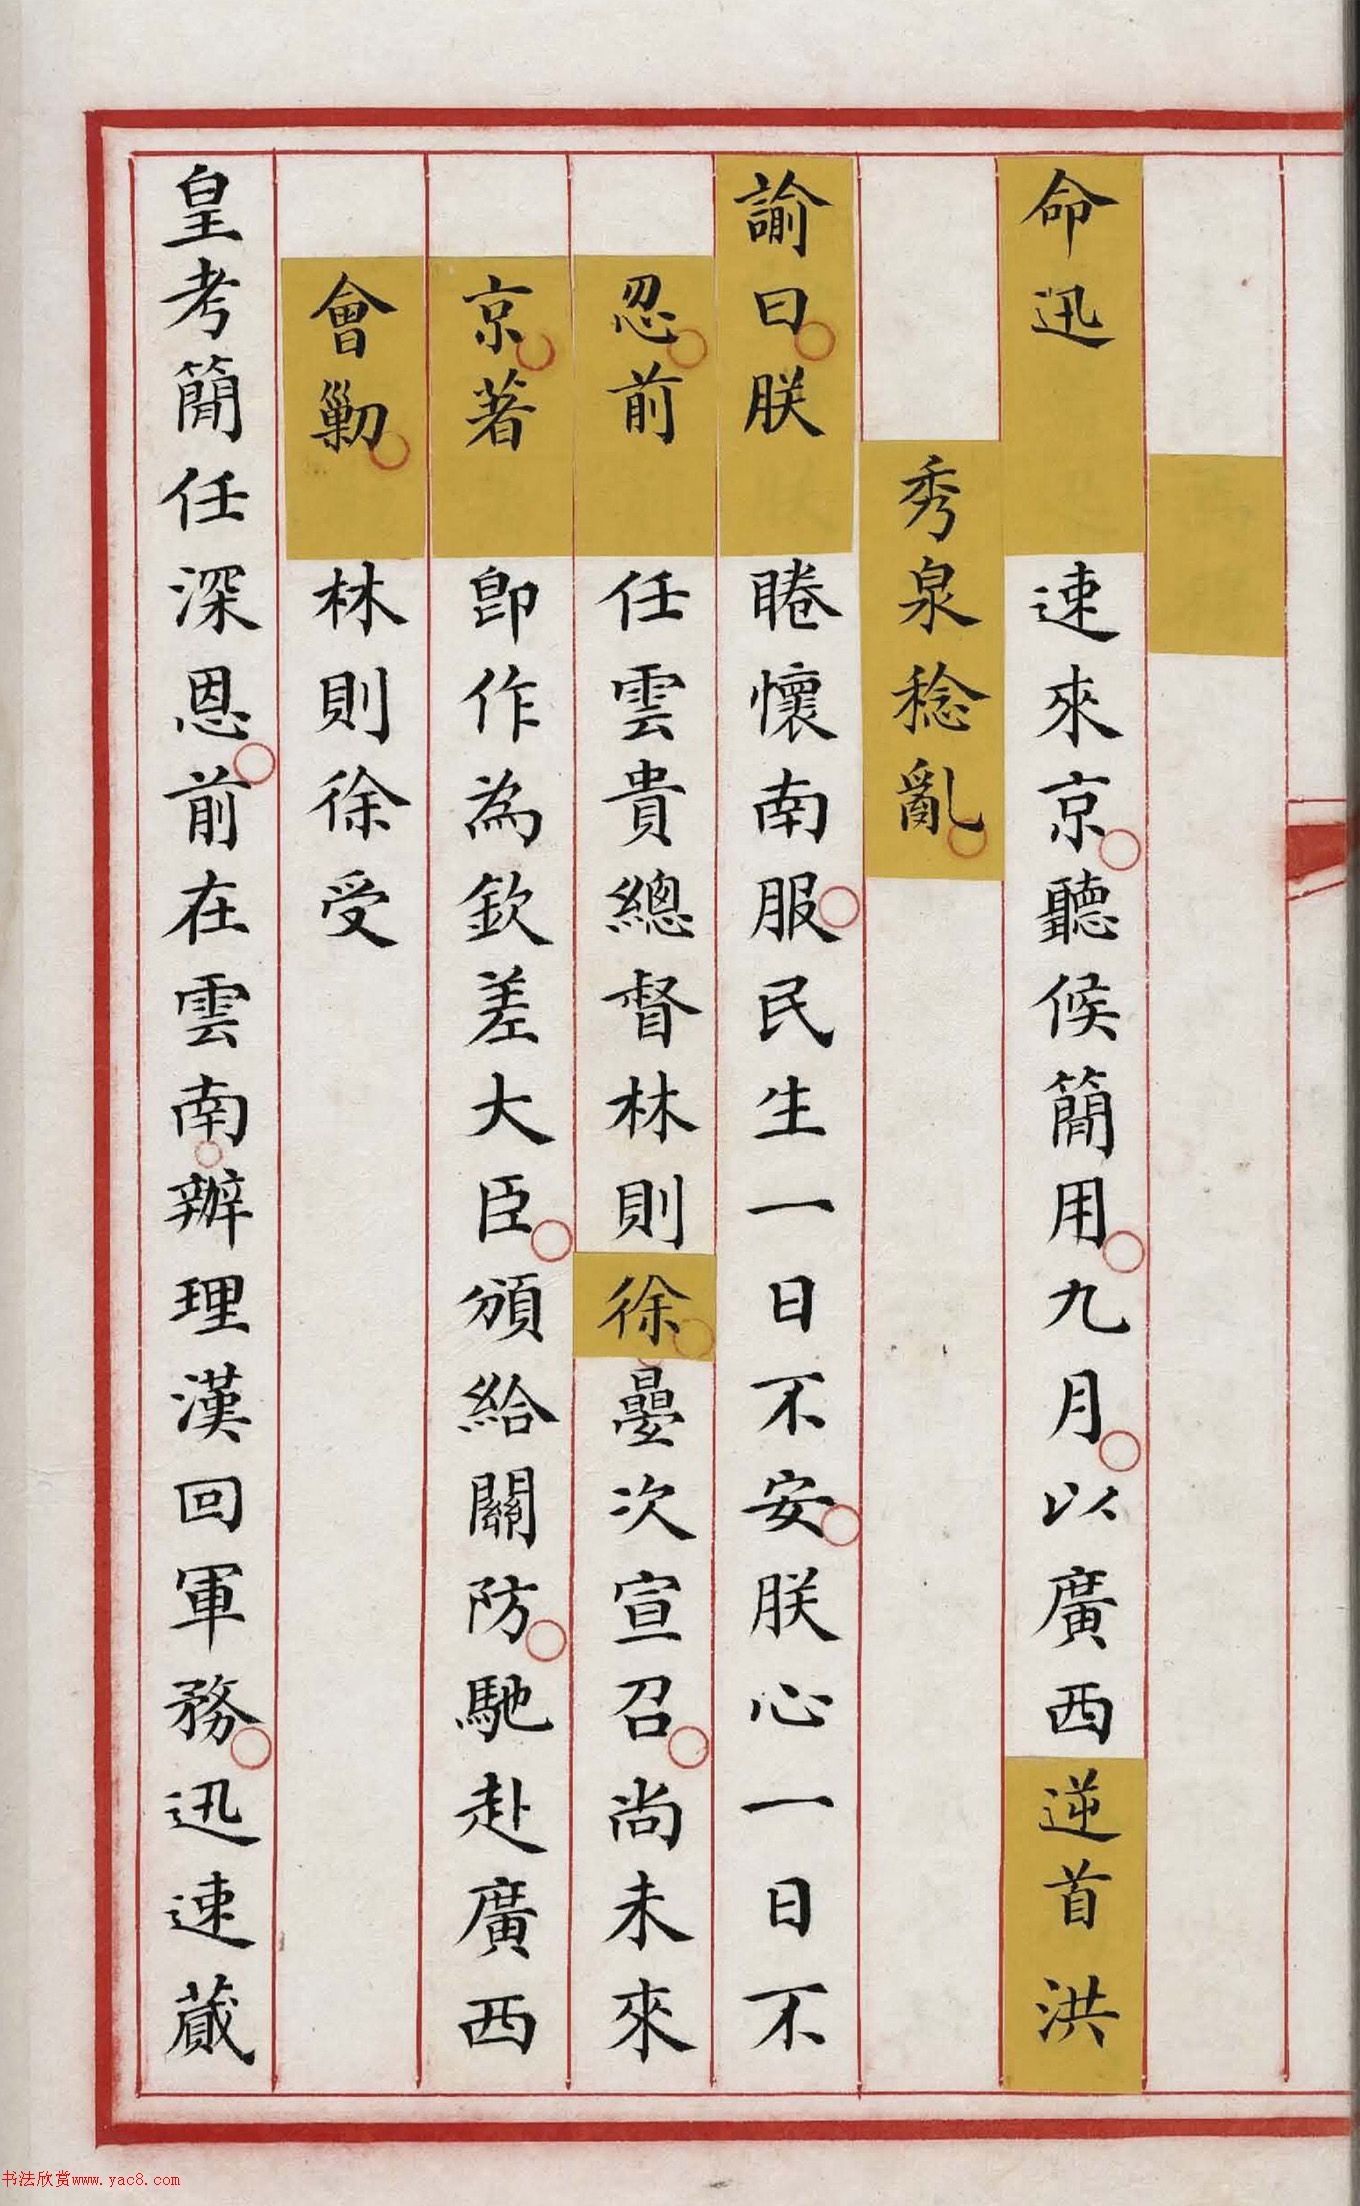 命迅速來京聽候簡用九月以廣西逆首洪
秀泉稔亂
諭曰朕睠懷南服民生一日不安朕心一日不
忍前任雲貴總督林則徐曡次宣召尚未來
京著即作為欽差大臣頒給關防馳赴廣西
會勦林則徐受
皇考簡任深恩前在雲南辦理漢回軍務迅速蕆
书法欣赏www.yac8.com